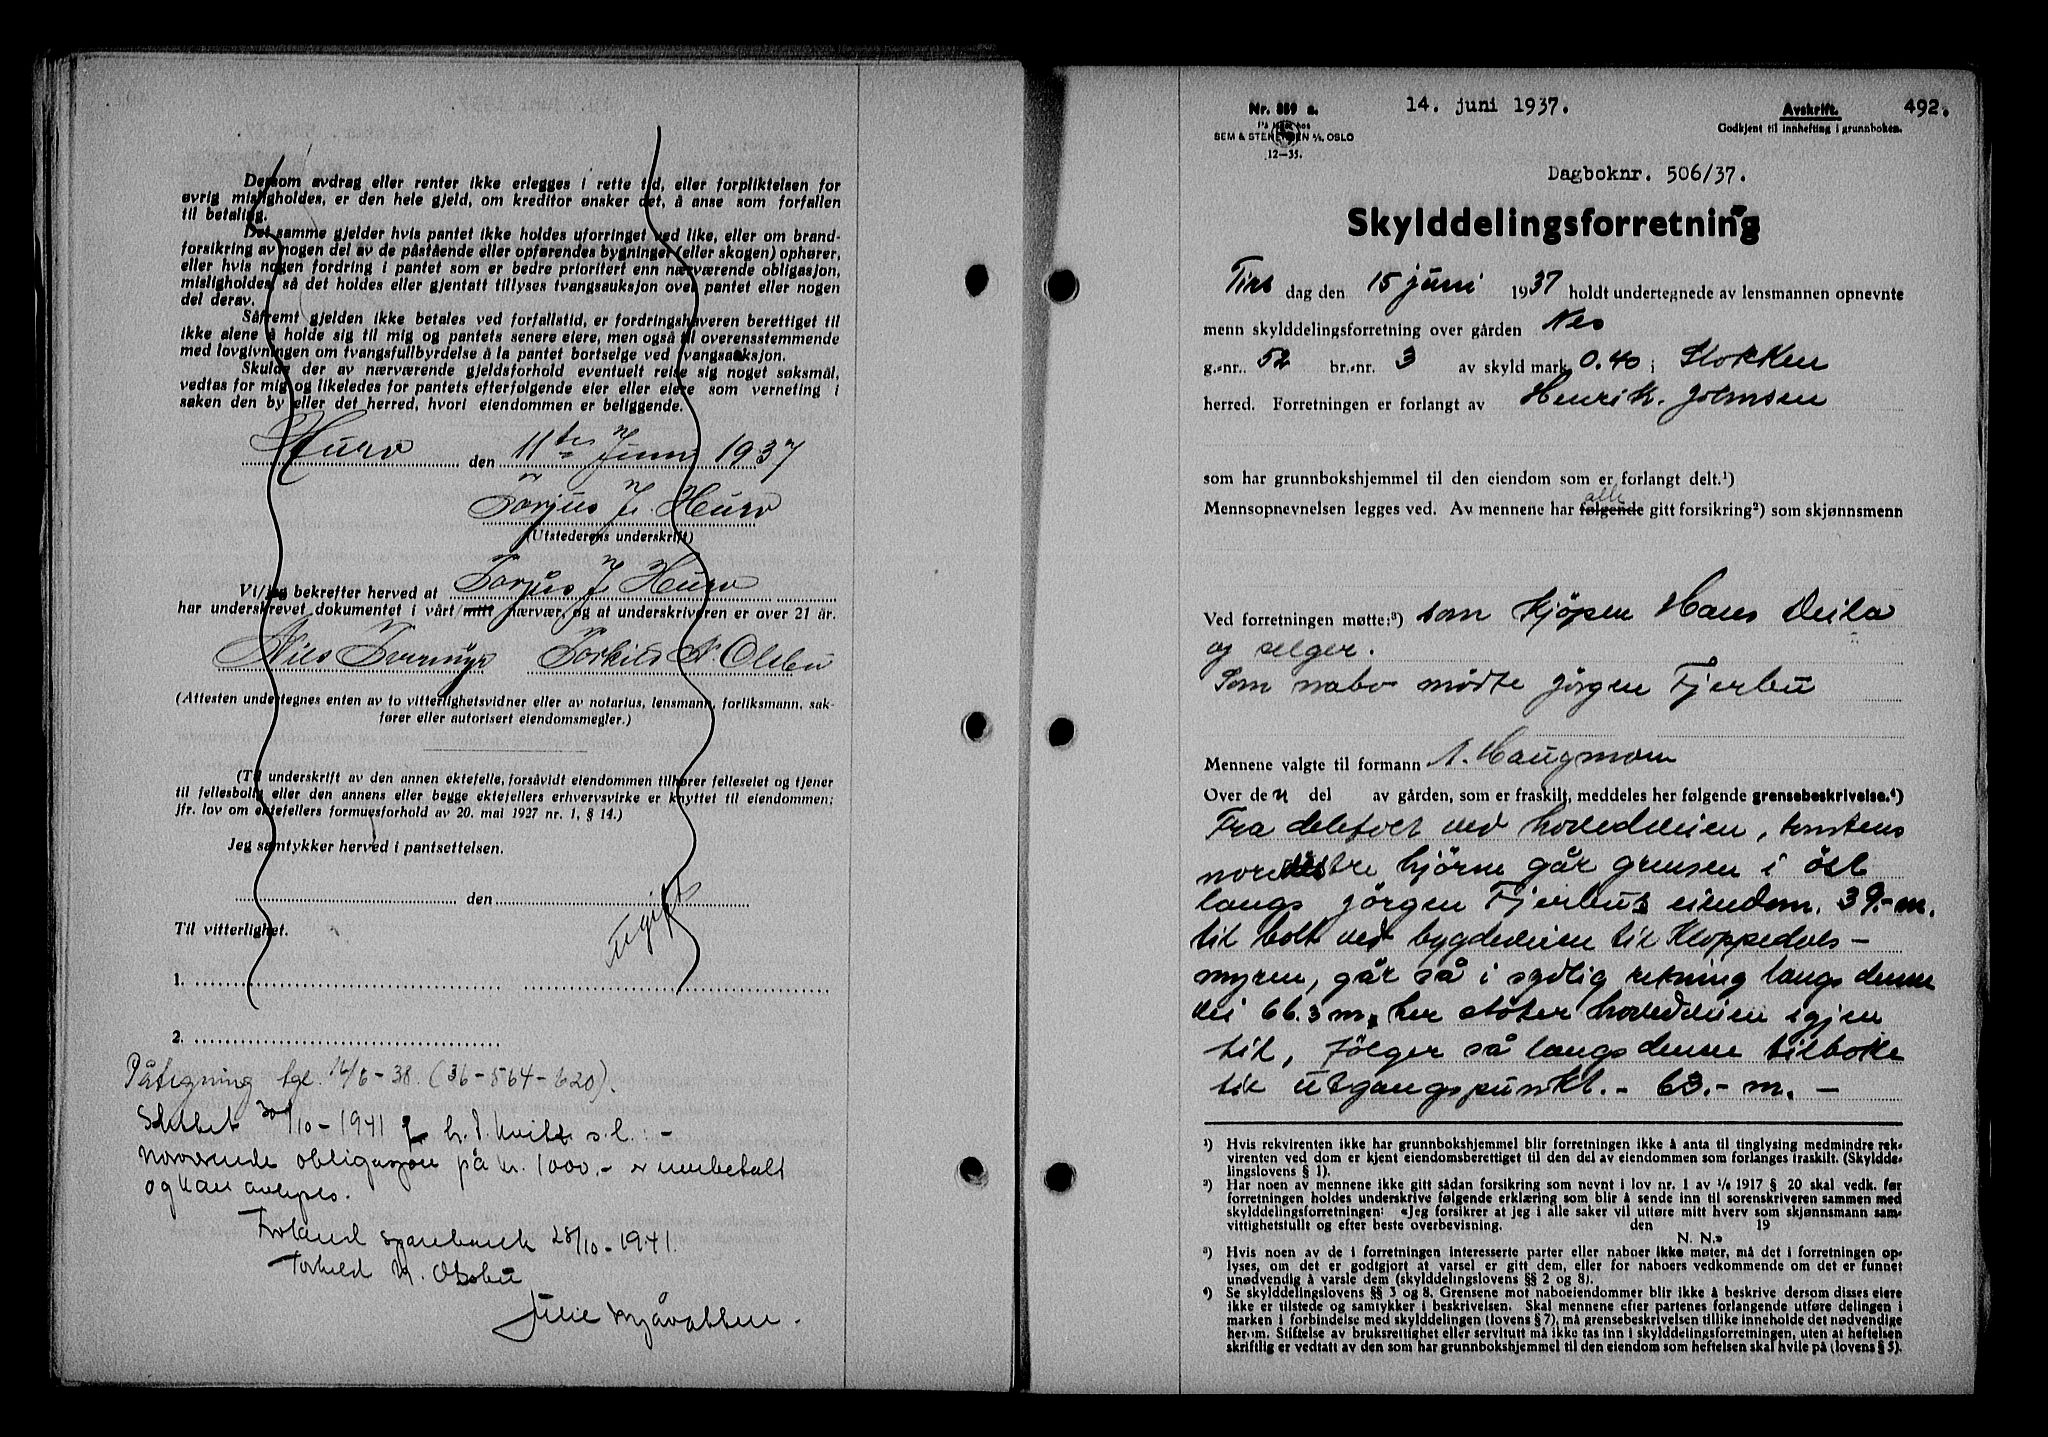 Dersom avdrag eller renter ikke erlegges i rette tid, eller forpliktelsen for
øvrig misligholdes, er den hele gjeld, om kreditor ønsker det, å anse som forfallen
til betaling.
Det samme gjelder hvis pantet ikke holdes uforringet ved like, eller om brand-
forsikring av nogen del av de påstående eller opførendes bygninger (eller skogen) ophører,
eller hvis nogen fordring i pantet som er bedre prioritert enn nærværende obligasjon,
misligholdes, så det holdes eller gjentatt tillyses tvangsauksjon over pantet eller nogen
del derav.
Såfremt gjelden ikke betales ved forfallstid, er fordringshaveren berettiget til
ikke alene å holde sig til mig og pantets senere eiere, men også til overensstemmende
med lovgivningen om tvangsfullbyrdelse å la pantet bortselge ved tvangsauksjon.
Skulde der av nærværende gjeldsforhold eventuelt reise sig noget søksmål,
vedtas for mig og likeledes for pantets efterfølgende eier eller eiere som verneting i
saken den by eller det herred, hvori eiendommen er beliggende.
Hurv den 11te Juni 1937
Torjus J. Hurv
(Utstederens underskrift)
Vi/jeg bekrefter herved at Torjus J Hurv
har underskrevet dokumentet i vårt/mitt nærvær, og at underskriveren er over 21 år.
Nils Torkild N. Olsbu
(Attesten undertegnes enten av to vitterlighetsvidner eller av notarius, lensmann, forliksmann, sak-
fører eller autorisert eiendomsmegler.)
(Til underskrift av den annen ektefelle, forsåvidt eiendommen tilhører felleseiet og tjener
til fellesbolig eller den annens eller begge ektefellers erhvervsvirke er knyttet til eiendommen;
jfr. lov om ektefellers formuesforhold av 20. mai 1927 nr. 1, § 14.)
Jeg samtykker herved i pantsettelsen.
den
Ugift
Til vitterlighet.
1.
2.
Påtegning tgl. 16/6-38. (36-564-620).
Slettet 30/10-1941 h. s.l.: -
Nærværende obligasjon på kr. 1000.- er innbetalt
og kan avlyses.
Froland sparebank 28/10-1941.
Torkild N. Olsbu
Julie Mjåvatten.
Nr. 889 a.
Få hos
SEM & STENERSEN A/S, OSLO
12-35.
14. juni 1937.
Avskrift.
492.
Godkjent til innhefting i grunnboken.
Dagboknr. 506/37.
Skylddelingsforretning
Tirs dag den 15 juni 1937 holdt undertegnede av lensmannen opnevnte
menn skylddelingsforretning over gården Nes
g.-nr. 52 br.-nr. 3 av skyld mark 0.40 i Stokken
herred. Forretningen er forlangt av Henrik Johnsen
som har grunnbokshjemmel til den eiendom som er forlangt delt.¹)
alle
Mennsopnevnelsen legges ved. Av mennene har følgende gitt forsikring²) som skjønnsmenn
Ved forretningen møtte:³) som kjøper Hans Deila
og selger.
Som nabo mødte Jörgen Fjerbu
Mennene valgte til formann A. Haugmoen
Over den del av gården, som er fraskilt, meddeles her følgende grensebeskrivelse.⁴)
Fra delefolt ved hovedveien, tomtens
nordvestre hjörne går grensen i öst
langs Jörgen Fjerbus eiendom. 39.-m.
til bolt ved bygdeveien til Kloppedals-
myren, går så i sydlig retning langs denne
vei 66.3 m, her støter hovedveien igjen
til, følger så langs denne tilbake
til utgangspunkt. - 63.- m. -
¹) Hvis rekvirenten ikke har grunnbokshjemmel blir forretningen ikke å anta til tinglysing medmindre rek-
virenten ved dom er kjent eiendomsberettiget til den del av eiendommen som forlanges fraskilt. (Skyldde-
lingslovens § 1).
²) Har noen av mennene ikke gitt sådan forsikring som nevnt i lov nr. 1 av 1/6 1917 § 20 skal vedk. før
forretningen holdes underskrive følgende erklæring som blir å sende inn til sorenskriveren sammen med
skylddelingsforretningen: «Jeg forsikrer at jeg i alle saker vil utføre mitt hverv som skjønnsmann sam-
vittighetsfullt og efter beste overbevisning. den 19
N. N.»
³) Hvis noen av de i forretningen interesserte parter eller naboer ikke møter, må det i forretningen op-
lyses, om det er godtgjort at varsel er gitt dem, eller for naboers vedkommende om det er funnet
unødvendig å varsle dem (skylddelingslovens §§ 2 og 8).
⁴) Se skylddelingslovens §§ 3 og 8. Grensene mot naboeiendommer blir ikke å beskrive dersom disses eiere
ikke er tilstede og samtykker i beskrivelsen. Skal mennene efter partenes forlangende utføre delingen i
marken i forbindelse med skylddelingen (lovens § 7), må grensebeskrivelsen tillike inneholde det nødvendige
herom. Stiftelse av bruksrettighet eller servitutt må ikke tas inn i skylddelingsforretningen, uten at heftelsen
skriftlig er vedtatt av den som har grunnbokshjemmel til den eiendom som heftelsen skal hvile på (lovens § 5).